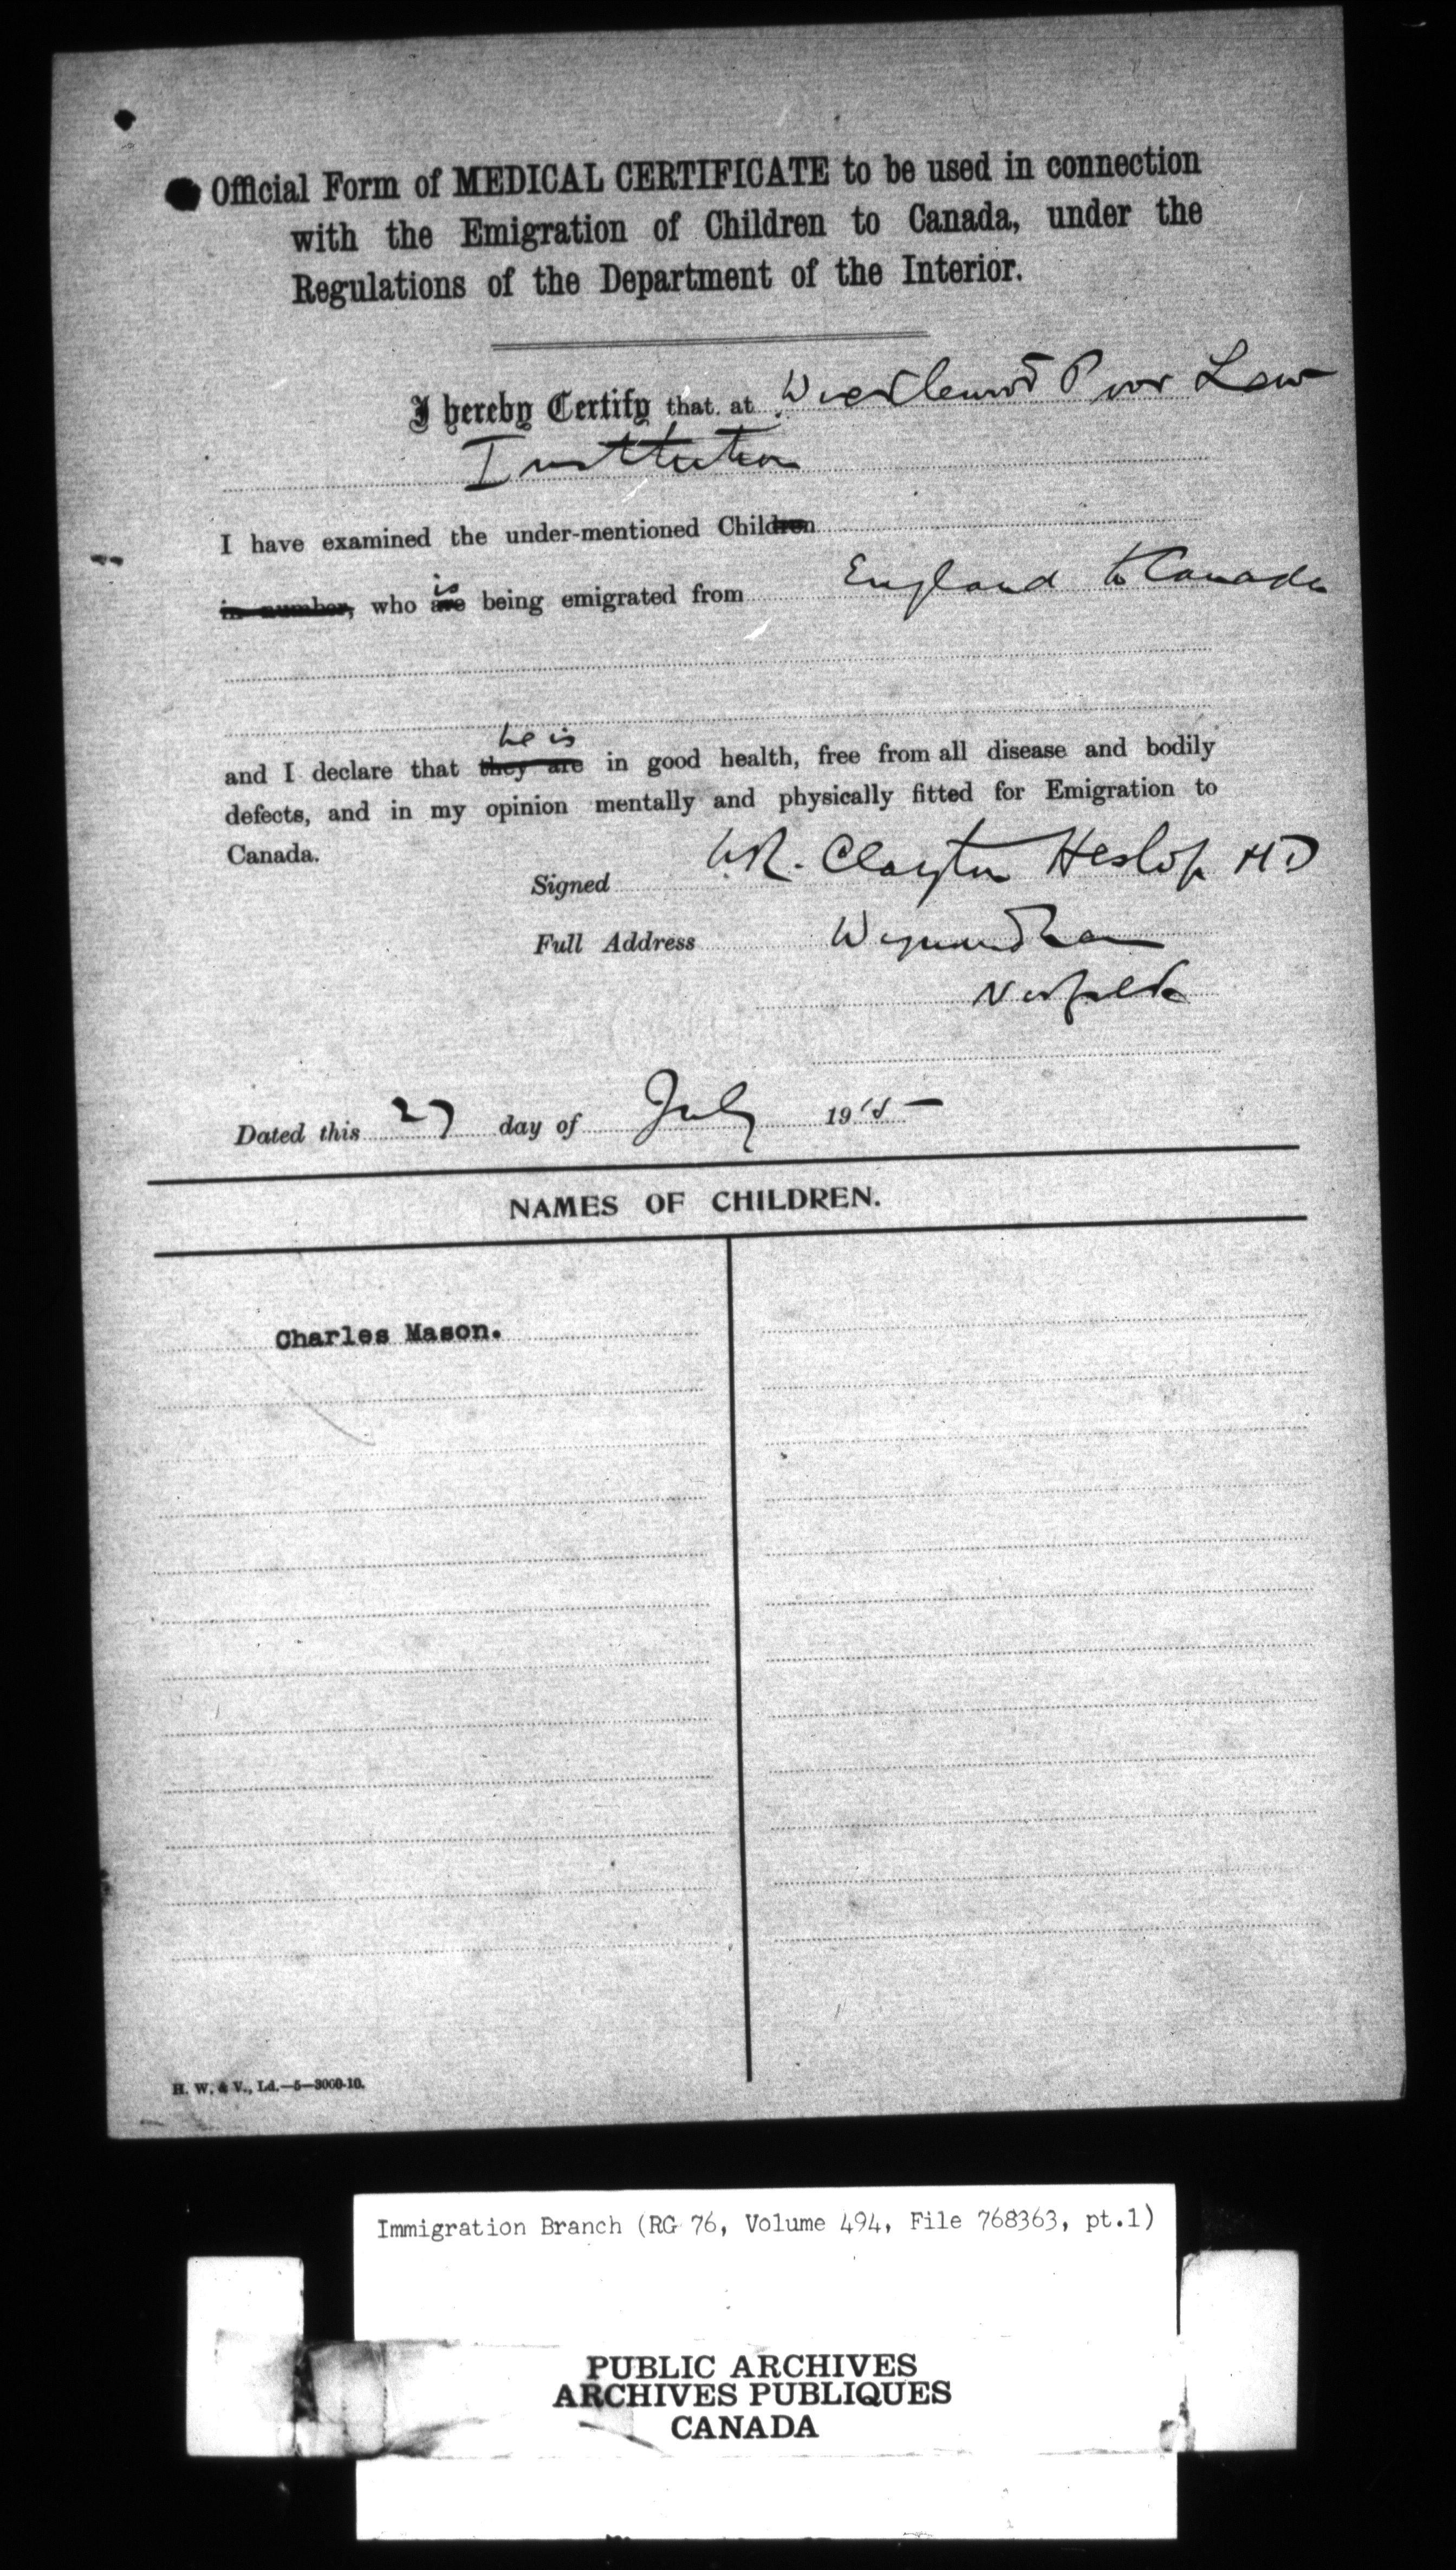 Official Form of MEDICAL CERTIFICATE to be used in connection
with the Emigration of Children to Canada, under the
Regulations of the Department of the Interior.
I hereby Certify that at Poor Law
Institution
I have examined the under-mentioned Children
in number, who are is being emigrated from England to Canada
he is
and I declare that they are in good health, free from all disease and bodily
defects, and in my opinion mentally and physically fitted for Emigration to
Canada.
Signed W.R. Clayton Heslop MD
Full Address Wymondham
Norfolk
Dated this 27 day of July 1915
NAMES OF CHILDREN.
Charles Mason.
H. W. & V., Ld.—5—3000-10.
Immigration Branch (RG 76, Volume 494, File 768363, pt.1)
PUBLIC ARCHIVES
ARCHIVES PUBLIQUES
CANADA